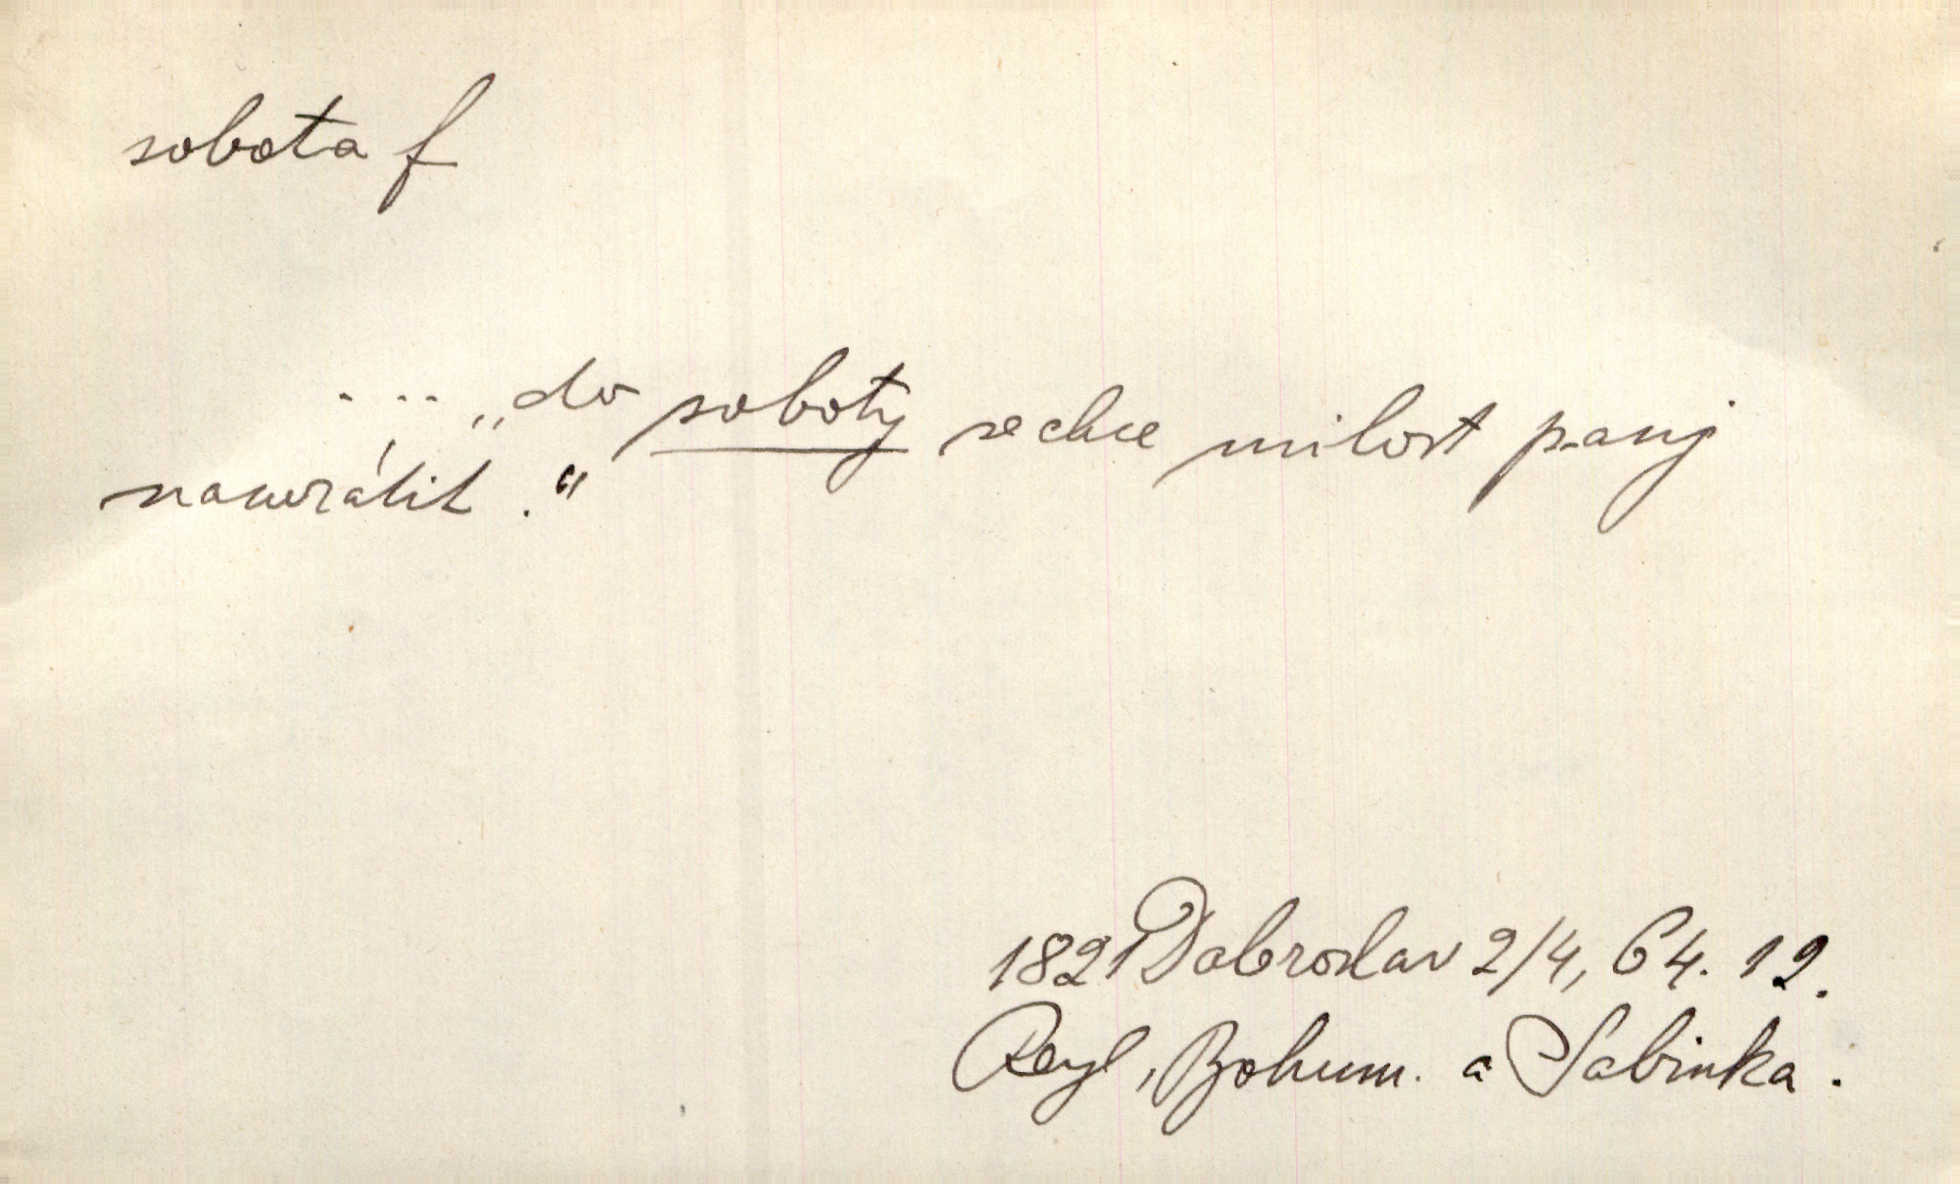 sobota f
.... „do soboty se chce milost panj
nawrátit."
1821 Dobroslav 2/4, 64. 12.
Reyl, Bohum. a Sabinka.